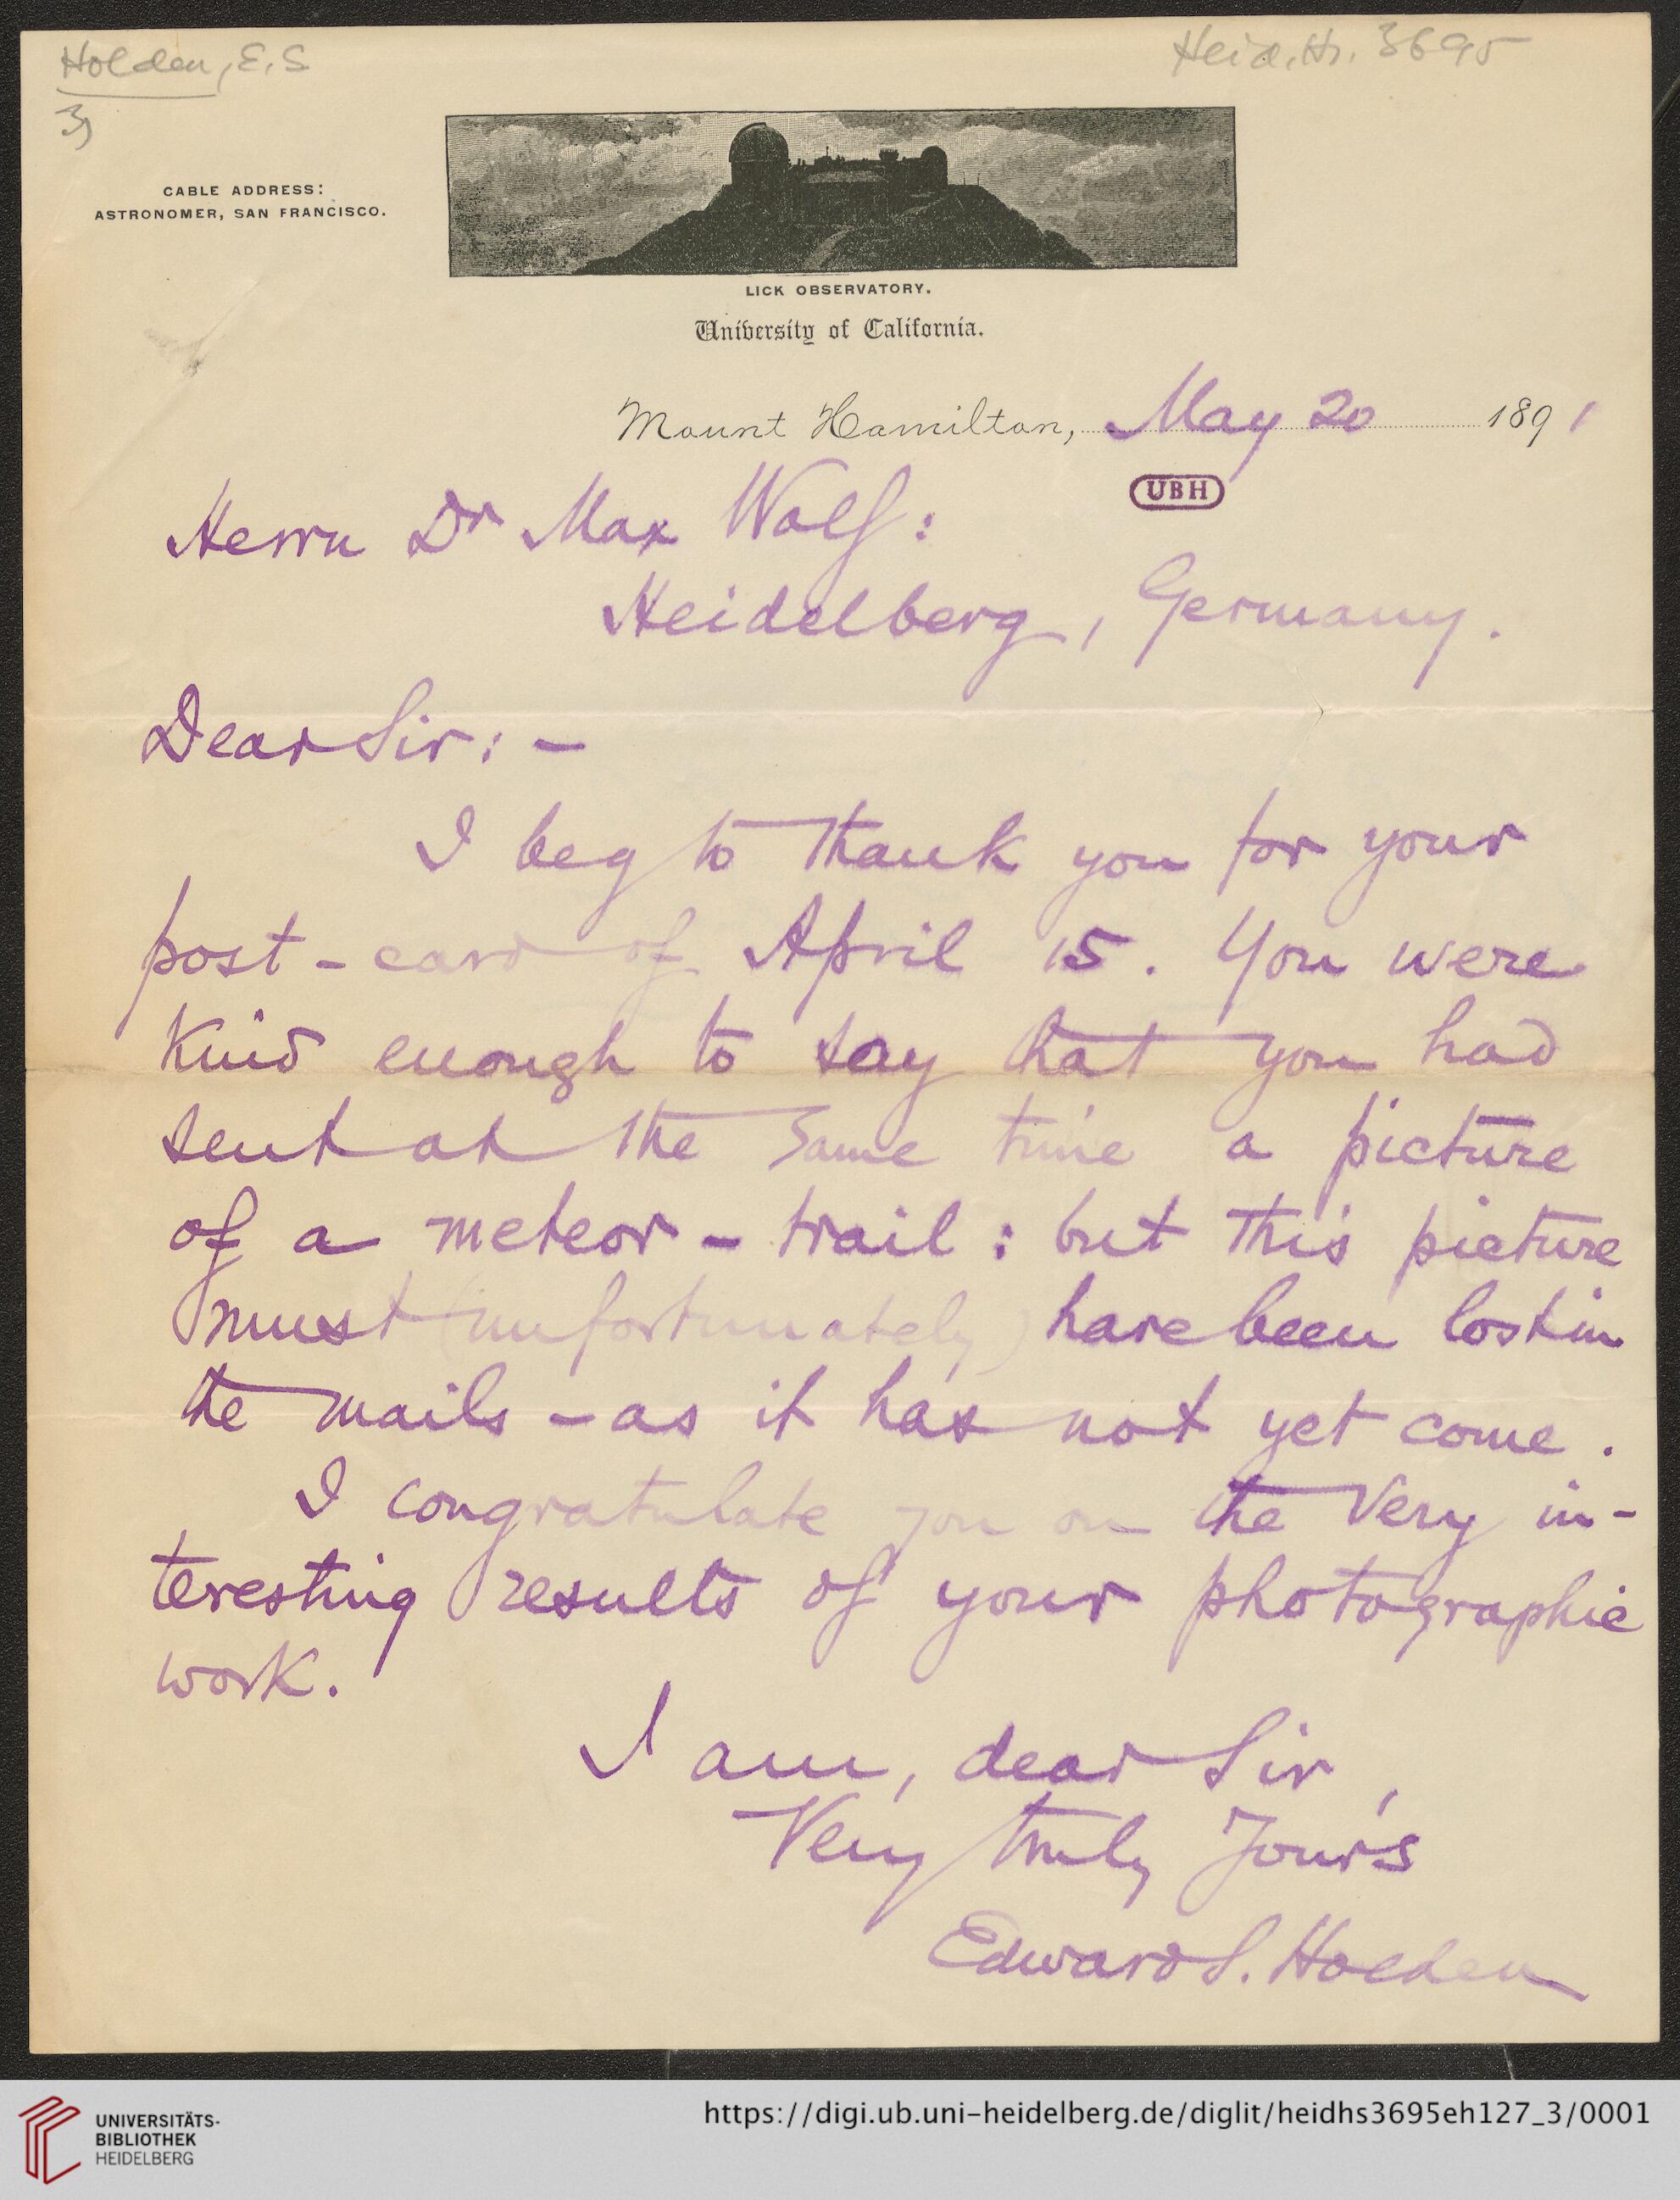 Holden, E. S
Heid. Hs. 3695
3)
CABLE ADDRESS:
ASTRONOMER, SAN FRANCISCO.
LICK OBSERVATORY.
University of California.
Mount Hamilton, May 20 1891
UBH
Herrn Dr Max Wolf:
Heidelberg, Germany.
Dear Sir: -
I beg to thank you for your
post-card of April 15. You were
kind enough to say that you had
sent at the same time a picture
of a meteor-trail: but this picture
must (unfortunately) have been lost in
the mails - as it has not yet come.
I congratulate you on the very in-
teresting results of your photographic
work.
I am, dear Sir,
Very truly Yours
Edward S. Holden
UNIVERSITÄTS-
BIBLIOTHEK
HEIDELBERG
https://digi.ub.uni-heidelberg.de/diglit/heidhs3695eh127_3/0001